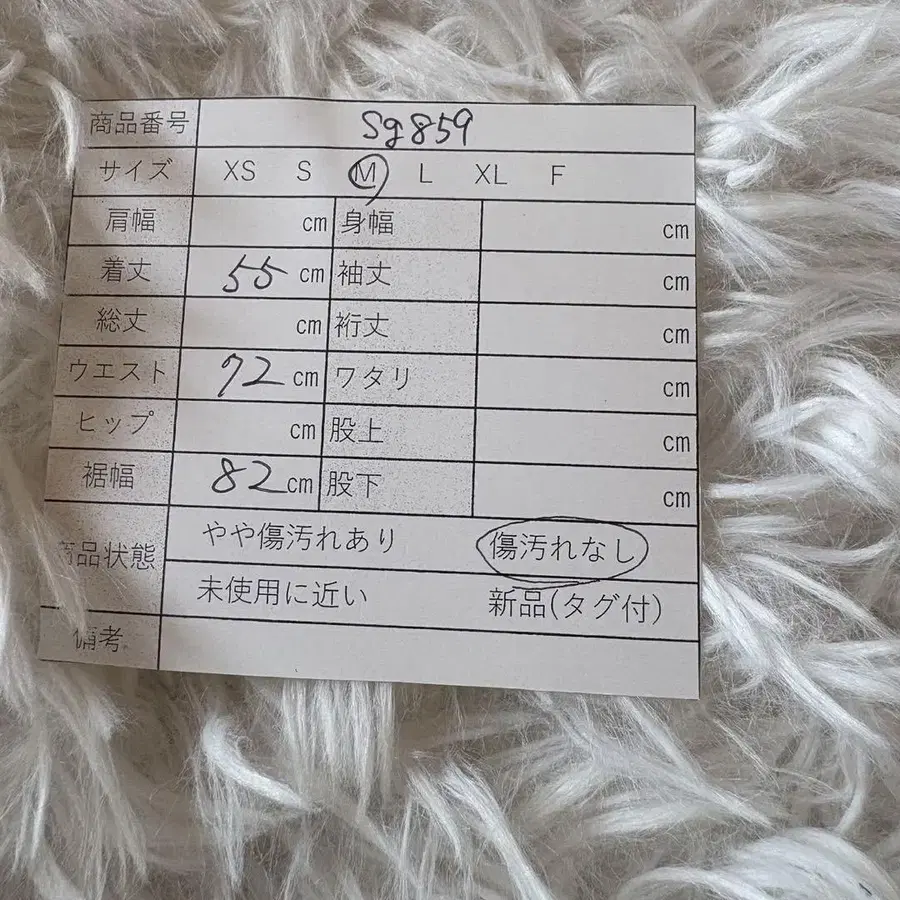 商品番号 Sg859
サイズ XS S M L XL F
肩幅 cm 身幅 cm
着丈 55 cm 袖丈 cm
総丈 cm 裄丈 cm
ウエスト 72 cm ワタリ cm
ヒップ cm 股上 cm
裾幅 82 cm 股下 cm
商品状態 やや傷汚れあり 傷汚れなし
未使用に近い 新品(タグ付)
備考